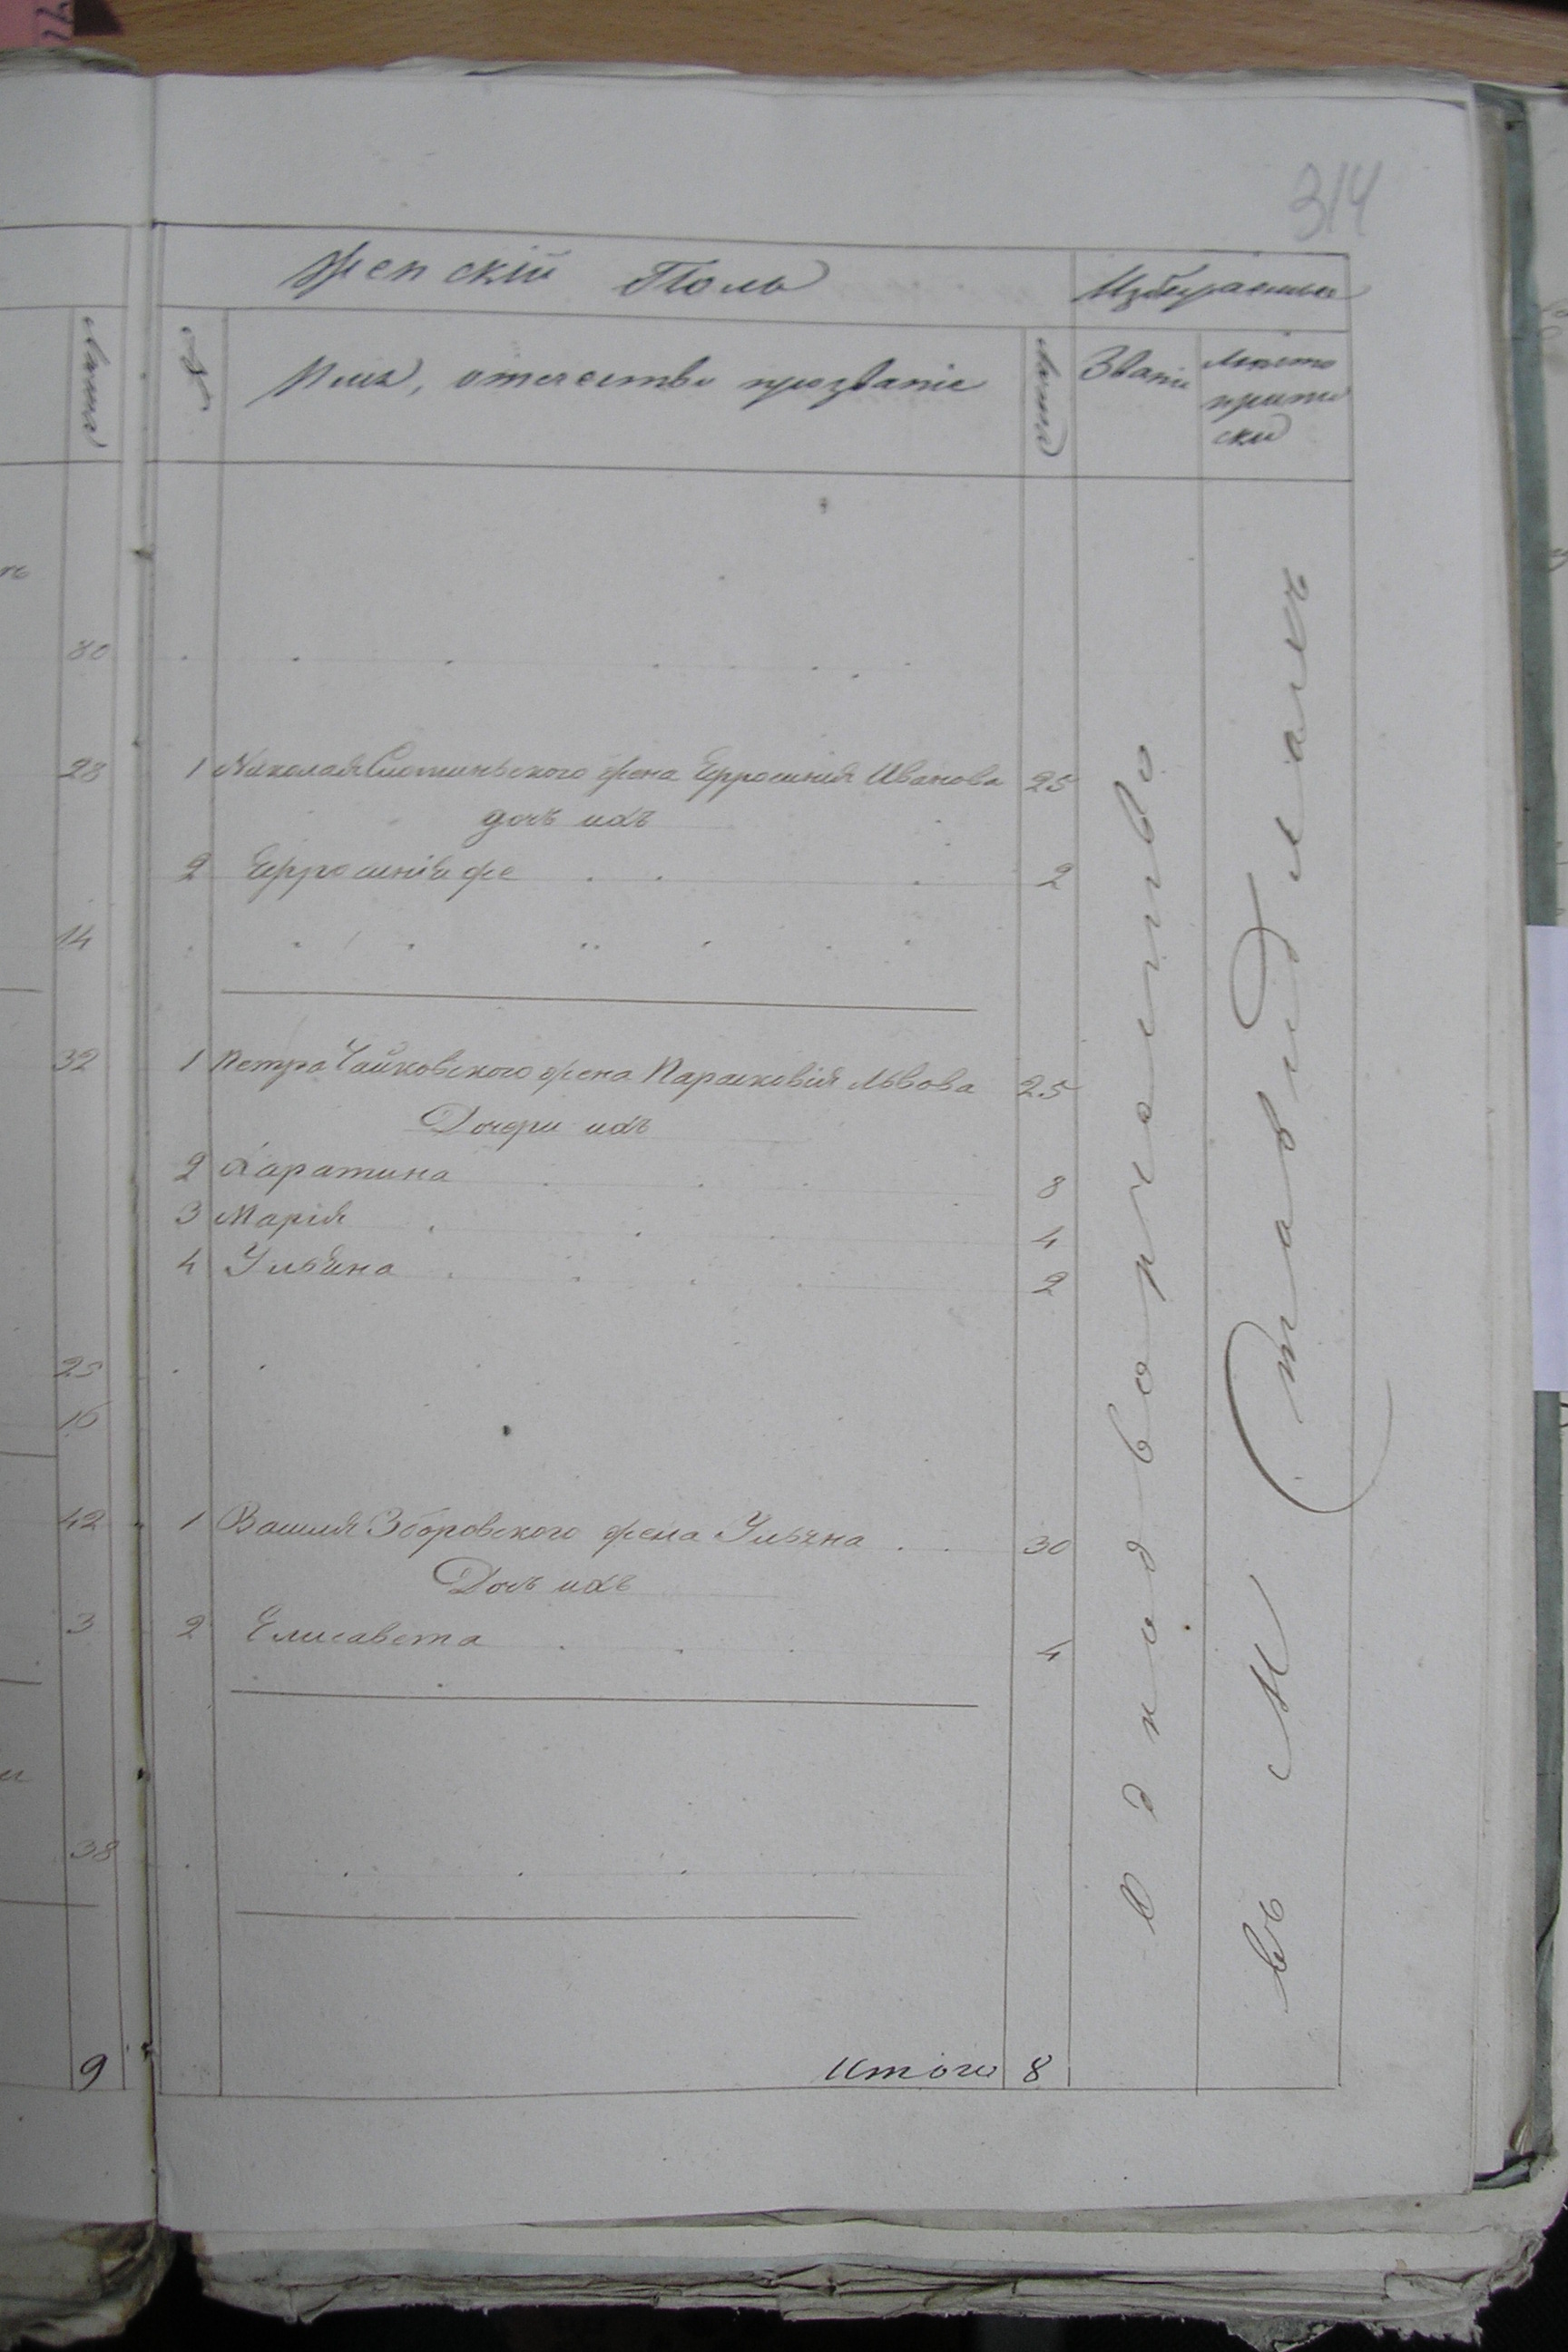 314
Женскій Полъ
Избираемые
Лѣта
№
Имя, отчество прозваніе
Лѣта
Званіе
Мѣсто
приписки
80
28
1 Николая жена Ефросинія Иванова 25
дочь ихъ
2 Ефросинія же 2
14
32
1 Петра Чайковского жена Парасковія Львова 25
Дочери ихъ
2 Харатина 8
3 Марія 4
4 Ульяна 2
25
16
42
1 Василія Зборовского жена Ульяна 30
Дочь ихъ
3
2 Елисавета 4
38
9
Итого 8
в однодворчество
въ М Ставидлахъ